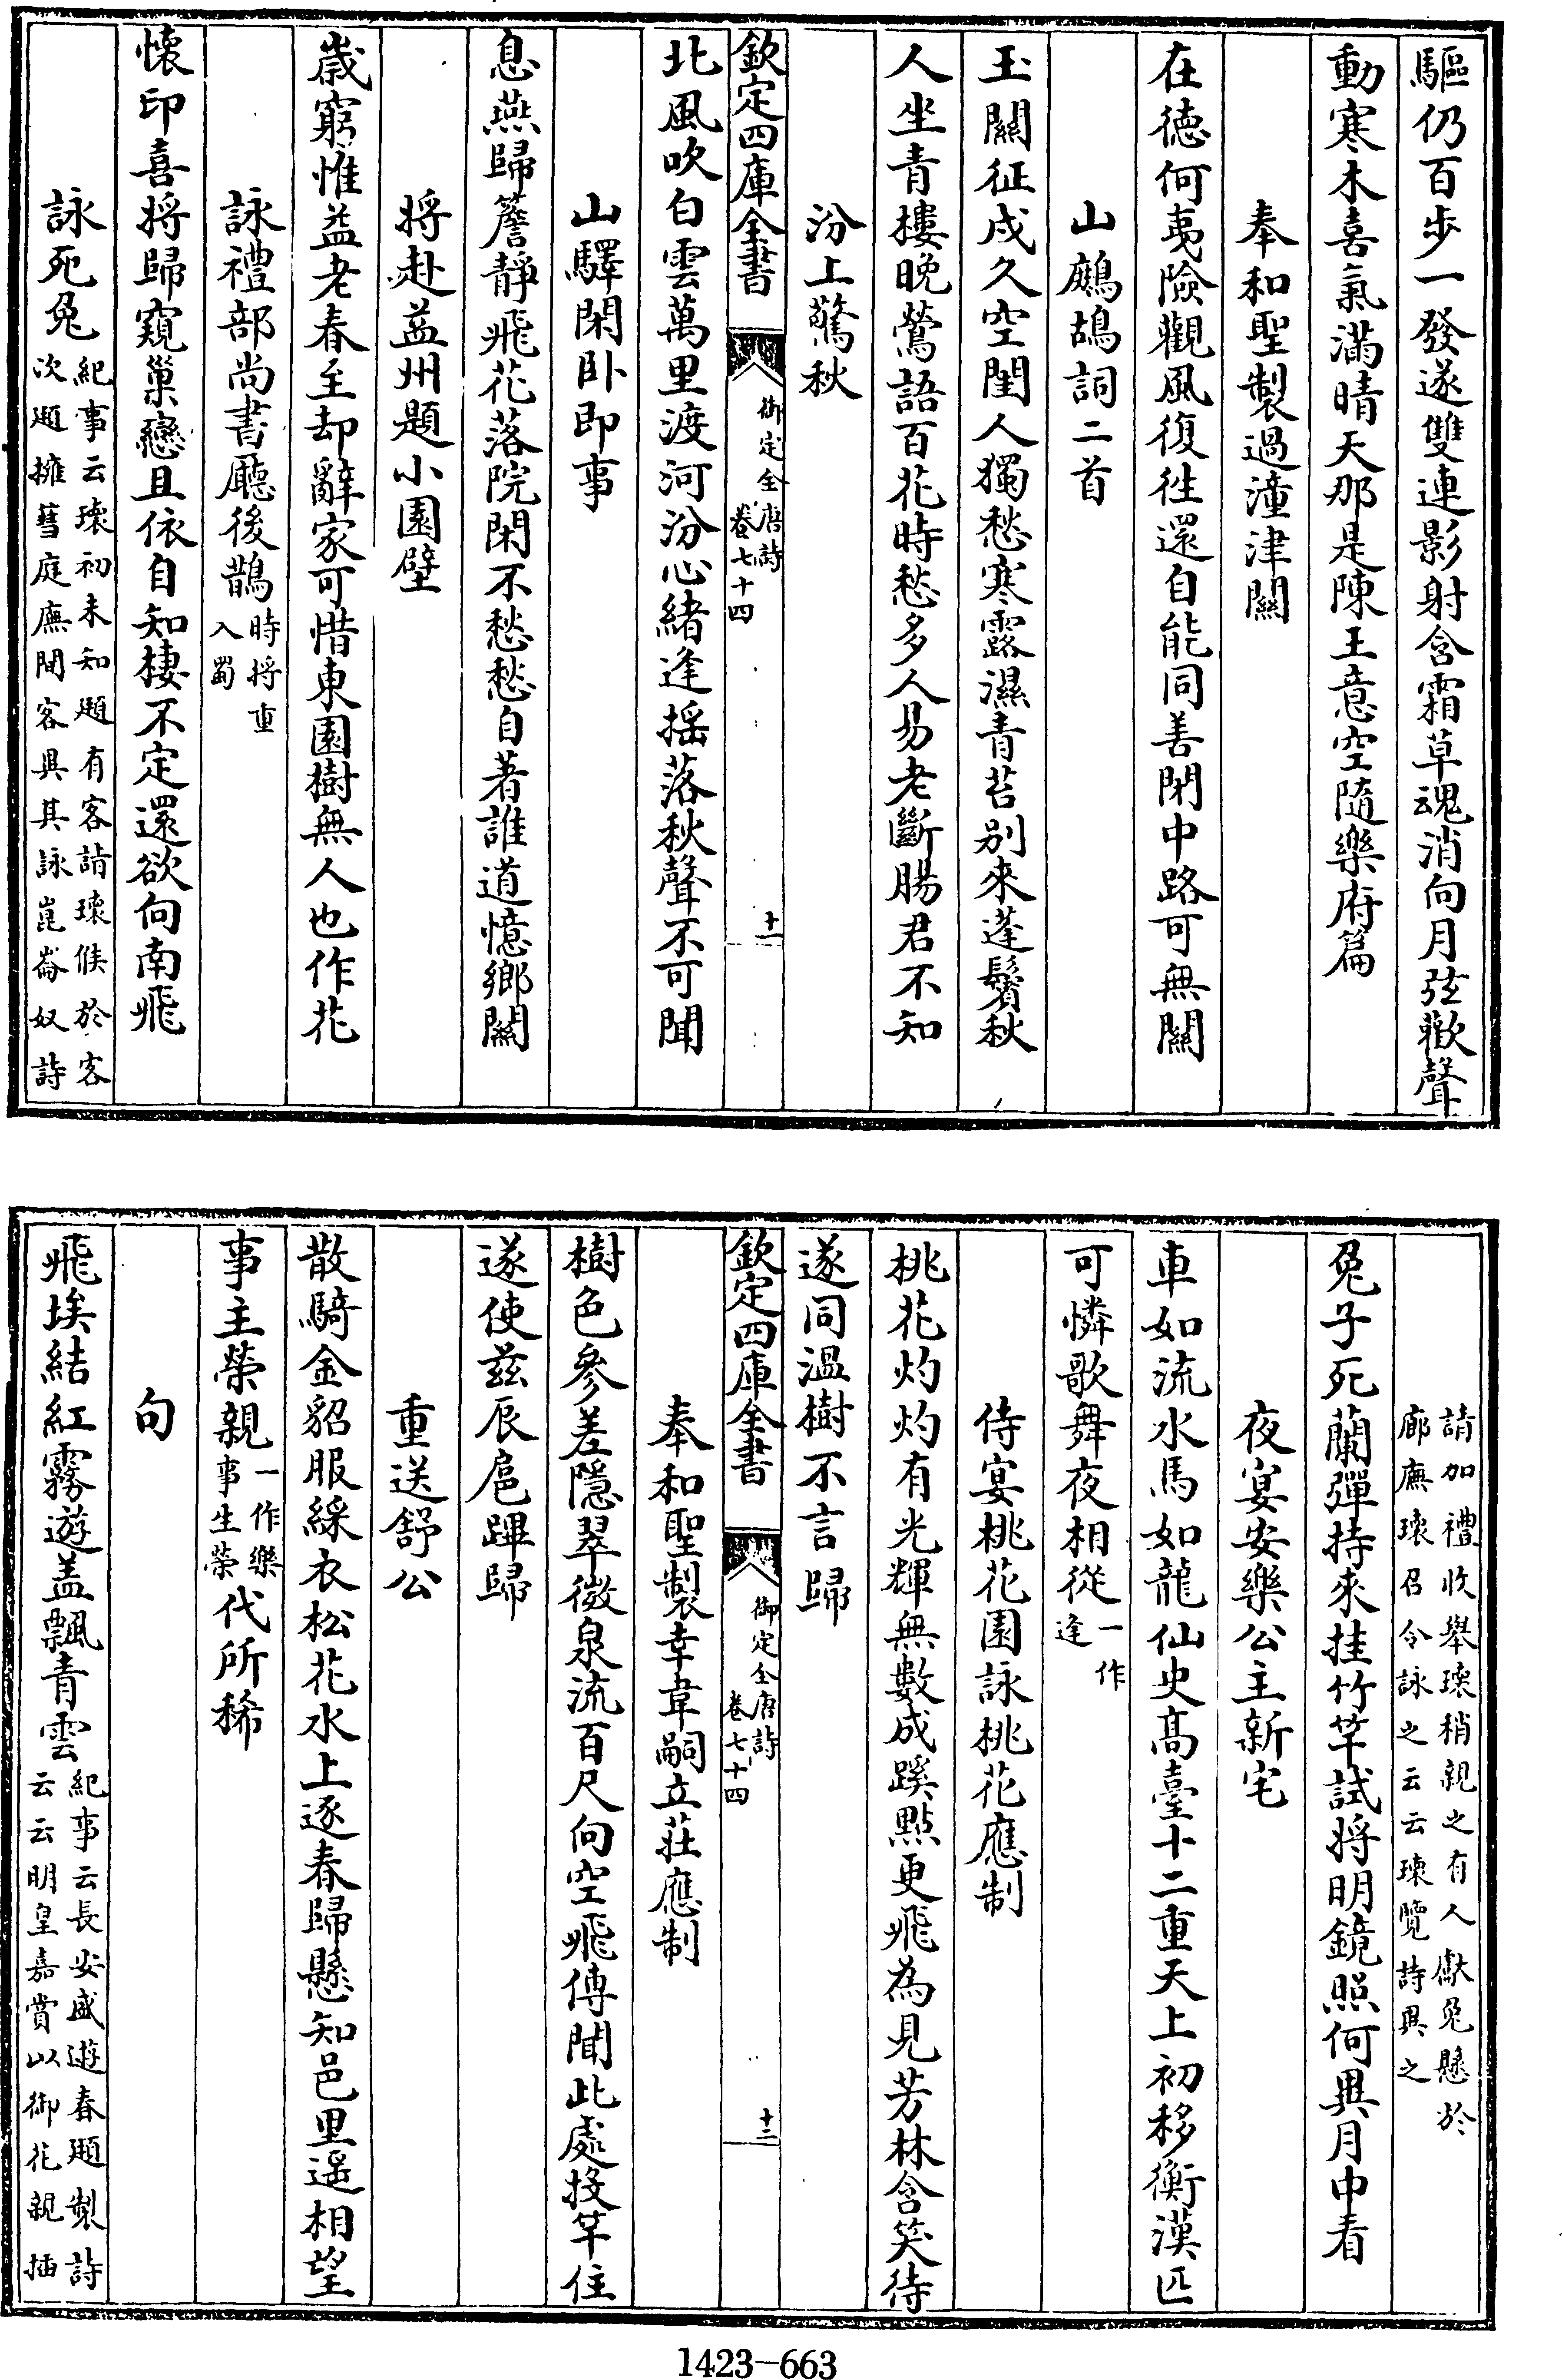 驅仍百步一發遂雙連影射含霜草魂消向月弦歡聲
動寒木喜氣滿晴天那是陳王意空隨樂府篇
奉和聖製過潼津關
在德何夷險觀風復徃還自能同善閉中路可無關
山鷓鴣詞二首
玉關征戍久空閨人獨愁寒露濕青苔别來蓬鬢秋
人坐青樓晚鶯語百花時愁多人易老斷腸君不知
汾上驚秋
欽定四庫全書
御定全唐詩
卷七十四
十一
北風吹白雲萬里渡河汾心緒逢揺落秋聲不可聞
山驛閑卧即事
息燕歸簷靜飛花落院閑不愁愁自著誰道憶鄉關
將赴益州題小園壁
歳窮惟益老春至却辭家可惜東園樹無人也作花
詠禮部尚書㕔後鵲時將重
入蜀
懐印喜將歸窺巢戀且依自知棲不定還欲向南飛
詠死兔紀事云瓌初未知題有客請瓌候於客
次題擁篲庭廡間客與其詠崑崙奴詩
請加禮收舉瓌稍親之有人獻兔懸於
廊廡瓌召令詠之云云瓌覽詩異之
兔子死蘭彈持來挂竹竿試將明鏡照何異月中看
夜宴安樂公主新宅
車如流水馬如龍仙史髙臺十二重天上初移衡漢匹
可憐歌舞夜相從一作
逢
侍宴桃花園詠桃花應制
桃花灼灼有光輝無數成蹊點更飛為見芳林含笑待
遂同温樹不言歸
欽定四庫全書
御定全唐詩
卷七十四
十二
奉和聖製幸韋嗣立莊應制
樹色參差隱翠微泉流百尺向空飛傳聞此處投竿住
遂使兹辰扈蹕歸
重送舒公
散騎金貂服綵衣松花水上逐春歸懸知邑里遥相望
事主榮親一作樂
事生榮代所稀
句
飛埃結紅霧遊盖飄青雲紀事云長安盛遊春題製詩
云云明皇嘉賞以御花親插
1423-663